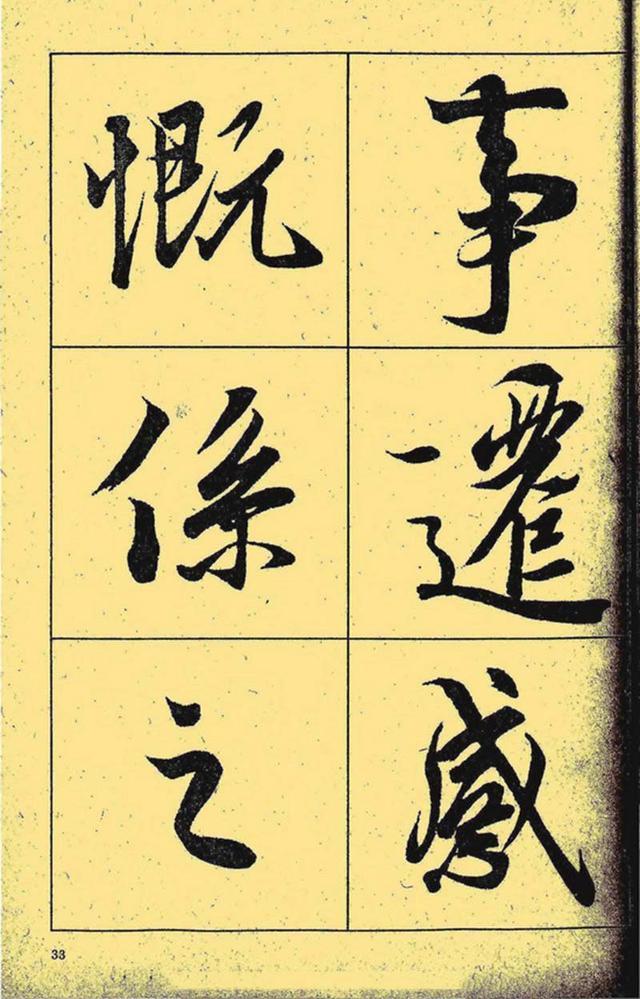 事遷感
慨係之
33